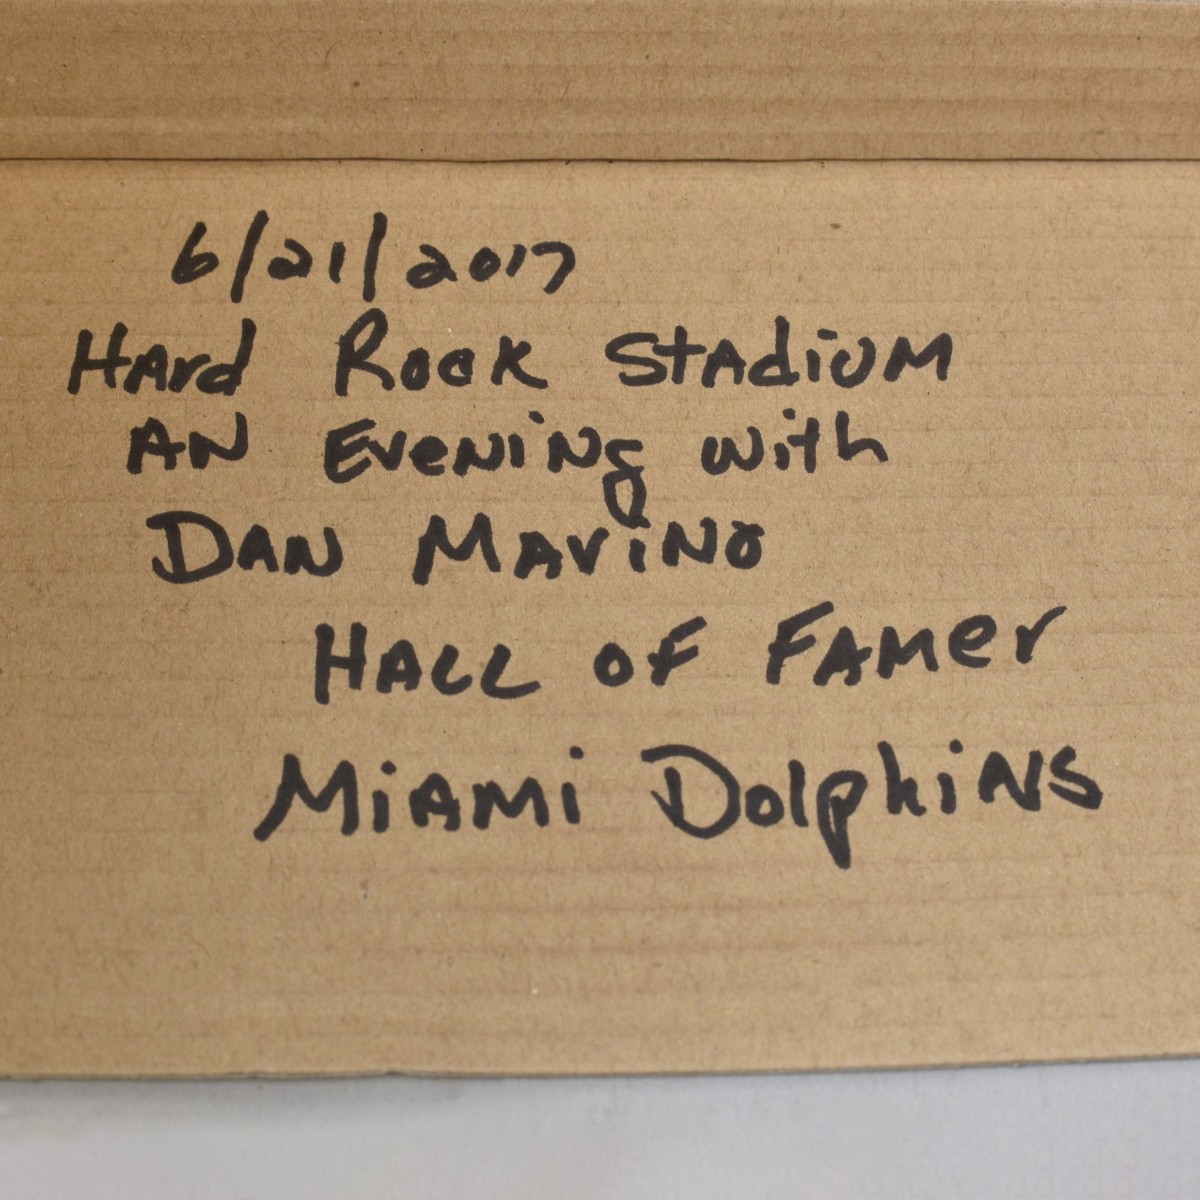 6/21/2017
Hard Rock Stadium
An Evening with
Dan Marino
Hall of Famer
Miami Dolphins